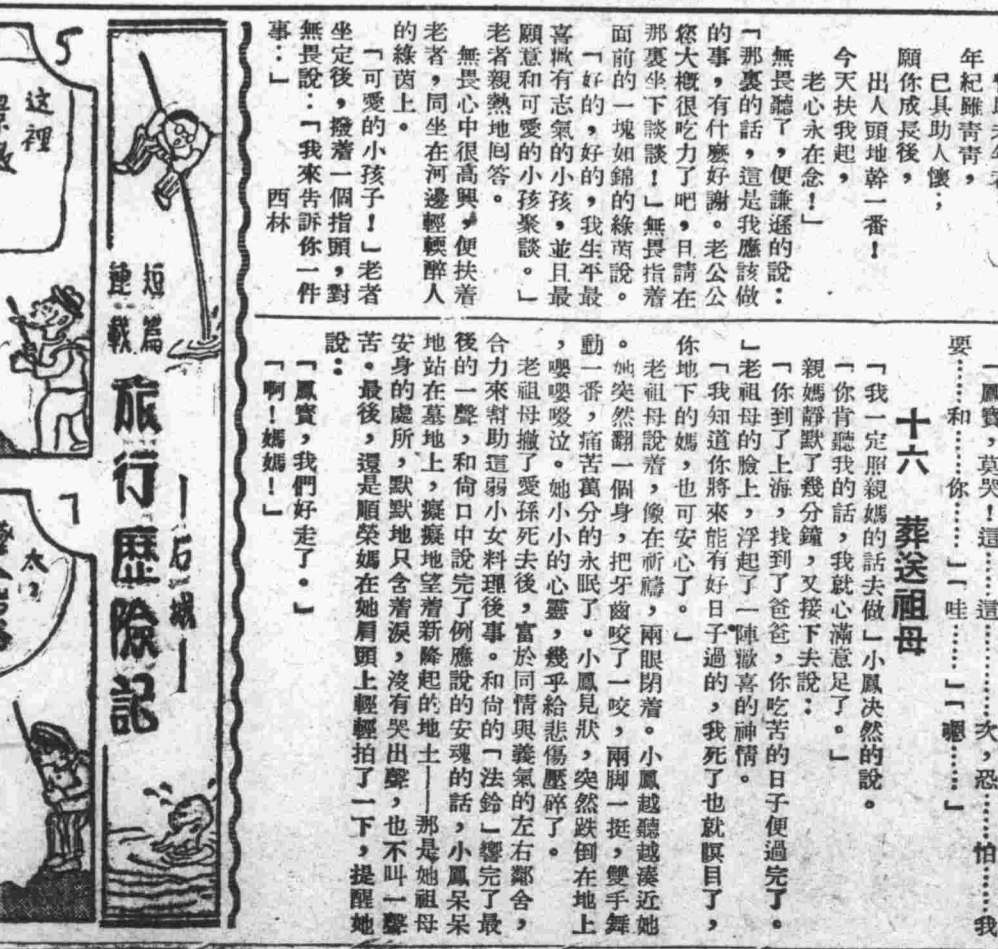 年紀雖靑靑,
已具助人懷;
願你成長後,
出人頭地幹一番!
今天扶我起,
老心永在念!」
無畏聽了,便謙遜的說:
「那裏的話,這是我應該做
的事,有什麽好謝。老公公
您大概很吃力了吧,且請在
那裏坐下談談!」無畏指着
面前的一塊如錦的綠茵說。
「好的,好的,我生平最
喜歡有志氣的小孩,並且最
願意和可愛的小孩聚談。」
老者親熱地囘答。
無畏心中很高興,便扶着
老者,同坐在河邊輕輭醉人
的綠茵上。
「可愛的小孩子!」老者
坐定後,撥着一個指頭,對
無畏說:「我來告訴你一件
事:」 西林
「鳳寶,莫哭!這……這……次,恐……怕……我
要……和……你……」「哇……」「嗯……」
十六 葬送祖母
「我一定照親媽的話去做」小鳳决然的說。
「你肯聽我的話,我就心滿意足了。」
親媽靜默了幾分鐘,又接下去說:
「你到了上海,找到了爸爸,你吃苦的日子便過完了。
」老祖母的臉上,浮起了一陣歡喜的神情。
「我知道你將來能有好日子過的,我死了也就瞑目了,
你地下的媽,也可安心了。」
老祖母說着,像在祈禱,兩眼閉着。小鳳越聽越湊近她
。她突然翻一個身,把牙齒咬了一咬,兩脚一挺,雙手舞
動一番,痛苦萬分的永眠了。小鳳見狀,突然跌倒在地上
,嚶嚶啜泣。她小小的心靈,幾乎給悲傷壓碎了。
老祖母撇了愛孫死去後,富於同情與義氣的左右鄰舍,
合力來幫助這弱小女料理後事。和尙的「法鈴」響完了最
後的一聲,和尙口中說完了例應說的安魂的話,小鳳呆呆
地站在墓地上,癡癡地望着新隆起的地土——那是她祖母
安身的處所,默默地只含着淚,沒有哭出聲,也不叫一聲
苦。最後,還是順榮媽在她肩頭上輕輕拍了一下,提醒她
說:
「鳳寶,我們好走了。」
「啊!媽媽!」
短篇
連載
旅行歷險記
—石城—
5
这裡
7
太